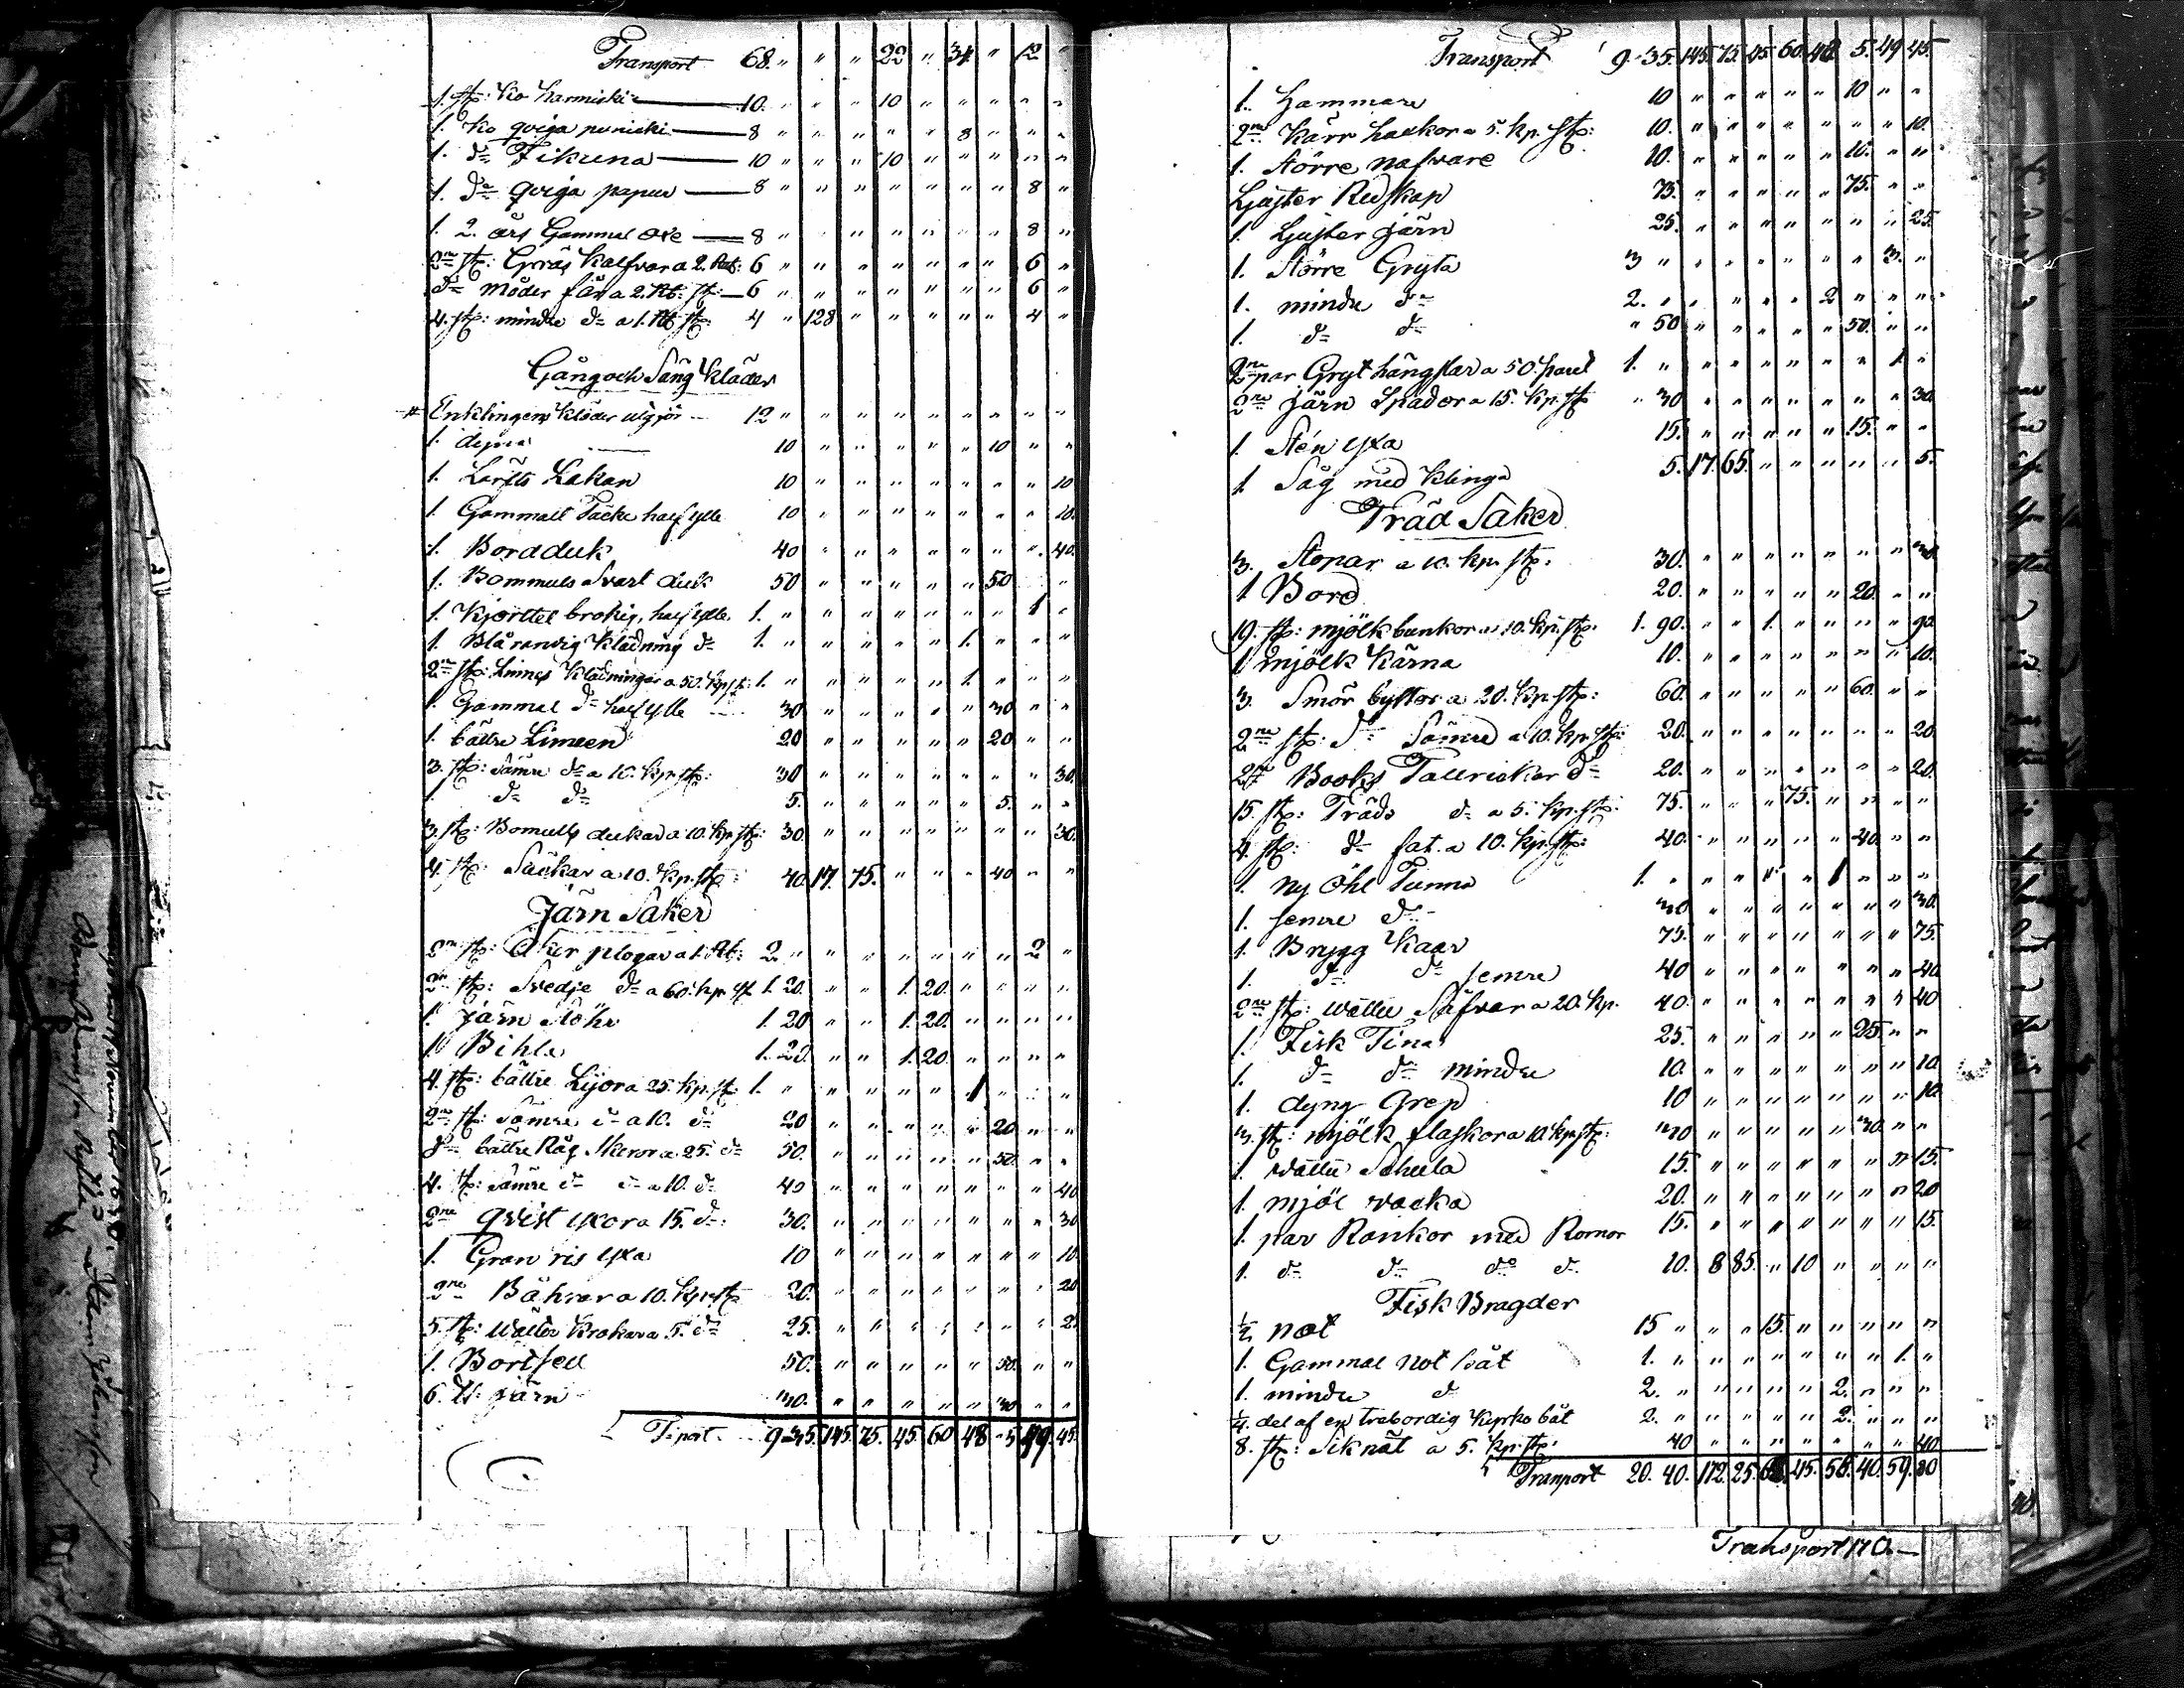 Transport 68. " " " 22 " 34 " 12 "
1. stk: Ko harmiski 10. " " " 10 " " " " "
1. Ko qviga puniski 8 " " " " " 8 " " "
1. do Fikuna 10 " " " 10 " " " " "
1. do qviga papuu 8 " " " " " " " 8 "
1. 2. års Gammal oxe 8 " " " " " " " 8 "
2ne stk: Gräs kalfvar a 2. Rub: 6 " " " " " " " 6 "
do möder får a 2. Rb: stk: 6 " " " " " " " 6 "
4. stk: mindre do a 1. Rb stk: 4 " 128 " " " " " 4 "
Gång och Säng Kläder
Enklingens kläder utgjör 12 " " " " " " " " "
1. dyna 10 " " " " " 10 " "
1. Lärfts Lakan 10 " " " " " " " 10
1. Gammalt Täcke half ylle 10 " " " " " " " 10.
1. Bordduk 40 " " " " " " " 40.
1. Bommuls Svart duk 50 " " " " " 50 " "
1. Kjorttel brokig, half ylle. 1. " " " " " " " 1 "
1. Blå randig Klädning do 1. " " " " " 1. " " "
2ne stk: Linnes Klädningar a 50. kp stk: 1. " " " " " 1. " " "
1. Gammal do half ylle 30 " " " " " 30 " "
1. bättre Linneen 20 " " " " " 20 " "
3. stk: Sämre do a 10. kp stk: 30 " " " " " " " 30.
1. do do 5. " " " " " 5. " "
3. stk: Bomulls dukar a 10. kp. stk: 30. " " " " " " " 30.
4. stk: Säckar a 10. kp. stk: 40 17. 75. " " " 40 " "
Järn Saker
2ne stk: Åker plogar a 1. Rb: 2 " " " " " " " 2 "
2ne stk: Svedje do a 60. kp. st 1. 20. " " 1. 20. " " " "
1. Järn Stöhr 1. 20 " " 1. 20. " " " "
1. Bihla 1. 20. " " 1. 20 " " " "
4. stk: bättre Lijor a 25. kp. st: 1. " " " " " 1 " " "
2ne st: Sämre do a 10. do 20 " " " " " 20 " "
do bättre Råg Skeror a 25. do 50. " " " " " 50. " "
4. st: sämre do do a 10. do 40 " " " " " " " 40
2ne qvist yxor a 15. do: 30. " " " " " " " 30
1. Gran ris yxa 10 " " " " " " " 10.
2ne Båhrar a 10. kp stk 20. " " " " " " " 20
5. stk: Krokar a 5. do 25. " " " " " " "
1. 50. " " " " " 50. " "
6. järn 30. " " " " " 30 " "
Tsport. 9. 35. 145. 75. 45. 60. 48 5 49. 45.
Transport 9. 35. 145. 75. 45. 60. 48 5. 49. 45.
1. Hammare 10 " " " " " 10 " "
2ne Kärr hackor a 5. kp. stk: 10. " " " " " " " 10.
1. Större nafvare 10. " " " " " 10. " "
Ljuster Redskap 75. " " " " " 75. " "
1. Ljuster järn 25. " " " " " " " 25.
1. Större Gryta 3 " " " " " " " 3. "
1. mindre do 2. " " " " " 2 " " "
1. do do " 50 " " " " " 50. " "
2ne par Gryt hängslar a 50. paret 1. " " " " " " " 1. "
2ne järn Spador a 15. kp. st " 30 " " " " " " " 30.
1. Stén yxa 15. " " " " " 15. " "
1. Såg med Klinga 5. 17. 65. " " " " " 5.
Träd Saker
3. Stopar a 10. kp. stk: 30. " " " " " " " 30.
1 Bord 20. " " " " " 20. " "
19. stk: mjölk bunkor a 10. kp. stk. 1. 90. " " 1. " " " " 90
1 mjölk Kärna 10. " " " " " " " 10.
3. Smör byttor a 20. kp. stk: 60. " " " " " 60. " "
2ne stk: do Sämre a 10. kp stk: 20. " " " " " " " 20.
2st Books Tallrickar do 20. " " " " " " " 20.
15. stk: Träds do a 5. kp. stk: 75. " " " 75. " " " "
4. stk: do fat a 10. kp. stk: 40. " " " " " 40. " "
1. ny öhl Tunna 1. " " " " " 1 " " "
1. semre do 30 " " " " " " " 30.
1. Brygg Kaar 75. " " " " " " " 75.
1. do do semre 40 " " " " " " " 40
2ne stk: wattu Såfvar a 20. kp. 40. " " " " " " " 40
1. Fisk Tina 25. " " " " " 25. " "
1. do do mindre 10. " " " " " " " 10
1. dyng Grep 10 " " " " " " " 10.
3. st: mjölk flaskor a 10. kp. stk: 30 " " " " " 30. " "
1. wattu Scheela 15. " " " " " " " 15.
1. mjöl vacka 20. " " " " " " " 20
1. par Rankor med Romor 15. " " " " " " " 15.
1. do do do do 10. 8 85. " 10 " " " "
Fisk Bragder
1/2 not 15 " " " 15. " " " " "
1. Gammal not båt 1. " " " " " " " 1. "
1. mindre do 2. " " " " " 2. " " "
1/4. del af en trebordig Kyrko båt 2. " " " " " 2. " " "
8. stk: Siknät a 5. kp. stk: 40 " " " " " " " 40
Tranport 20. 40. 172. 25. 45. 56. 40. 59. 30
Transport 170.